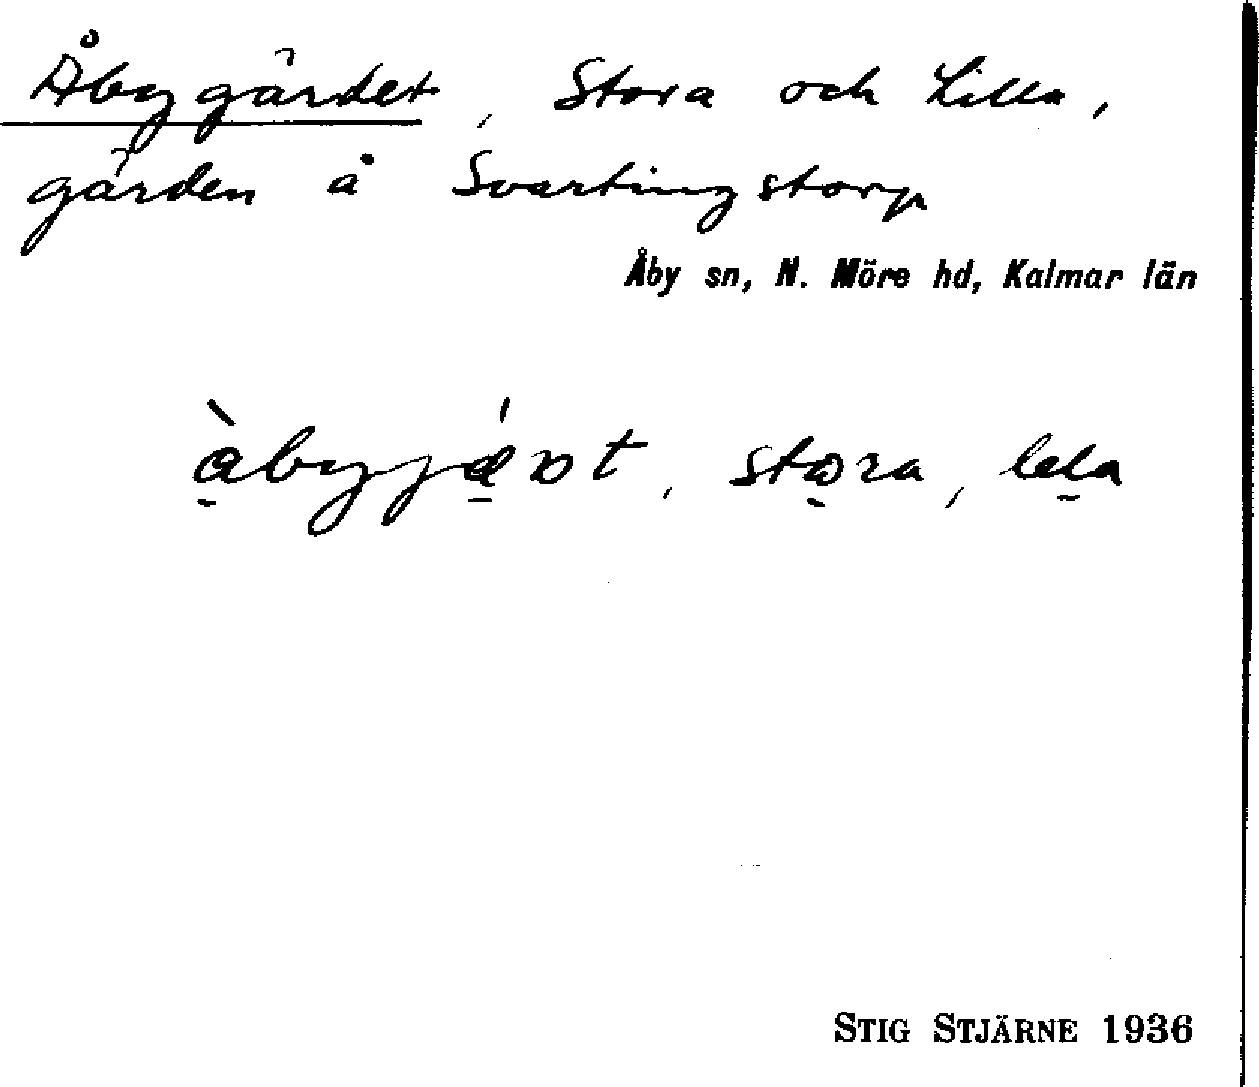 Åbygärdet, Stora och Lilla,
gärden å Svartingstorp
Åby sn, N. Möre hd, Kalmar län
stora, lela
STIG STJÄRNE 1936